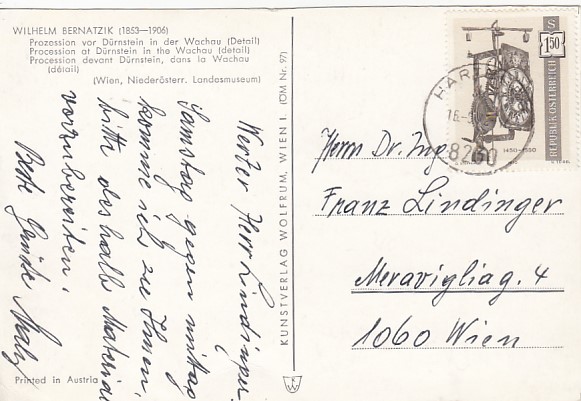 WILHELM BERNATZIK (1853—1906)
Prozession vor Dürnstein in der Wachau (Detail)
Procession at Dürnstein in the Wachau (detail)
Procession devant Dürnstein, dans la Wachau
(détail)
(Wien, Niederösterr. Landesmuseum)
Werter Herr Lindinger.
Samstag gegen mittag
komme ich zu Ihnen,
bitte deshalb Material
vorzubereiten.
Beste Grüße
Printed in Austria
KUNSTVERLAG WOLFRUM, WIEN I. (ÖM Nr. 97)
S
1.50
REPUBLIK ÖSTERREICH
1450-1550
HAR
8230
Herrn Dr. Ing.
Franz Lindinger
Meravigliag. 4
1060 Wien